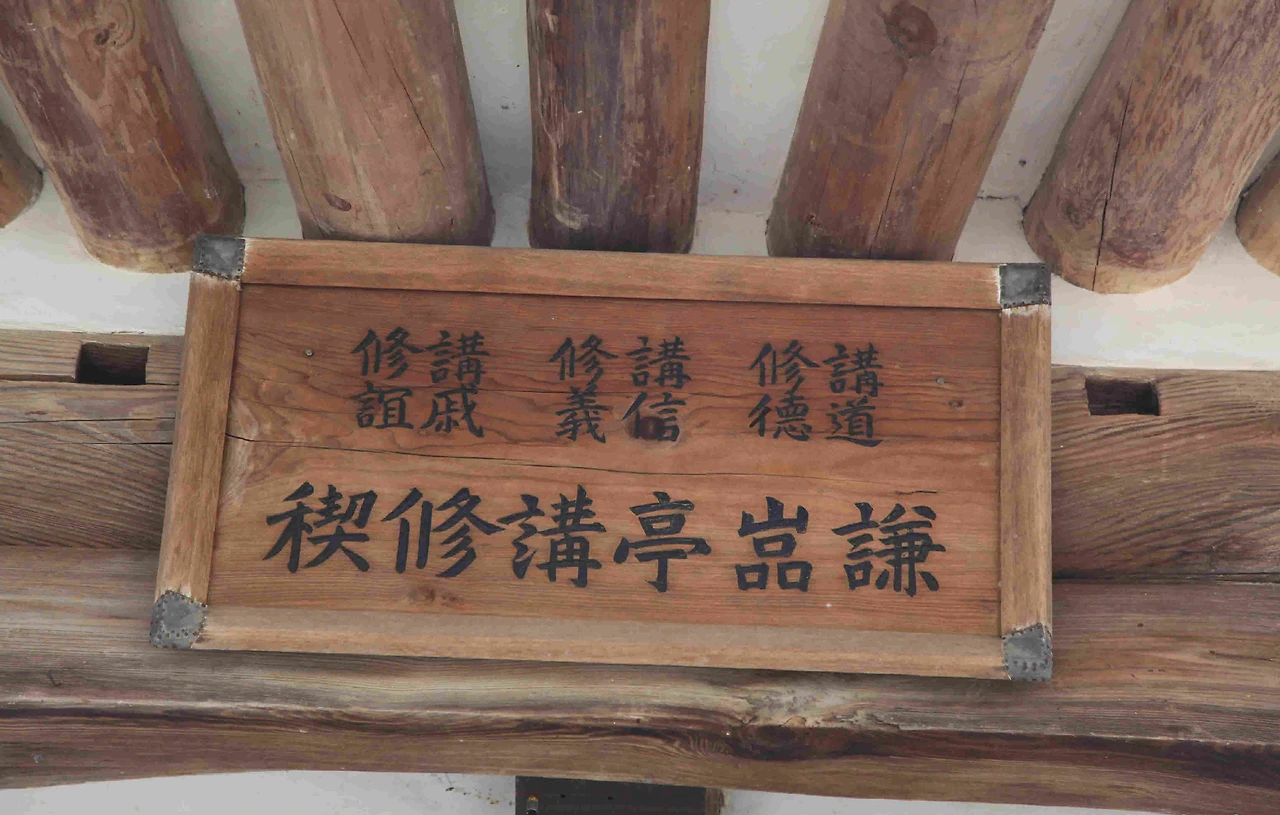 講道
修德
講信
修義
講戚
修誼
謙嵓亭講修稧